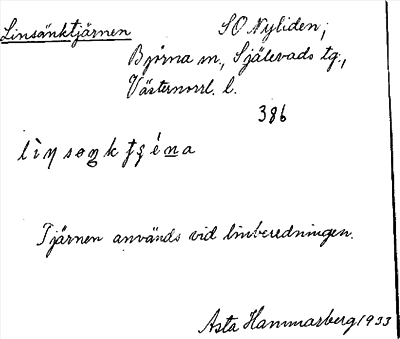 Linsänktjärnen SO Nyliden;
Björna sn., Själevads tg.,
Västernorrl. l.
386
Tjärnen används vid linberedningen.
Asta Hammarberg 1933